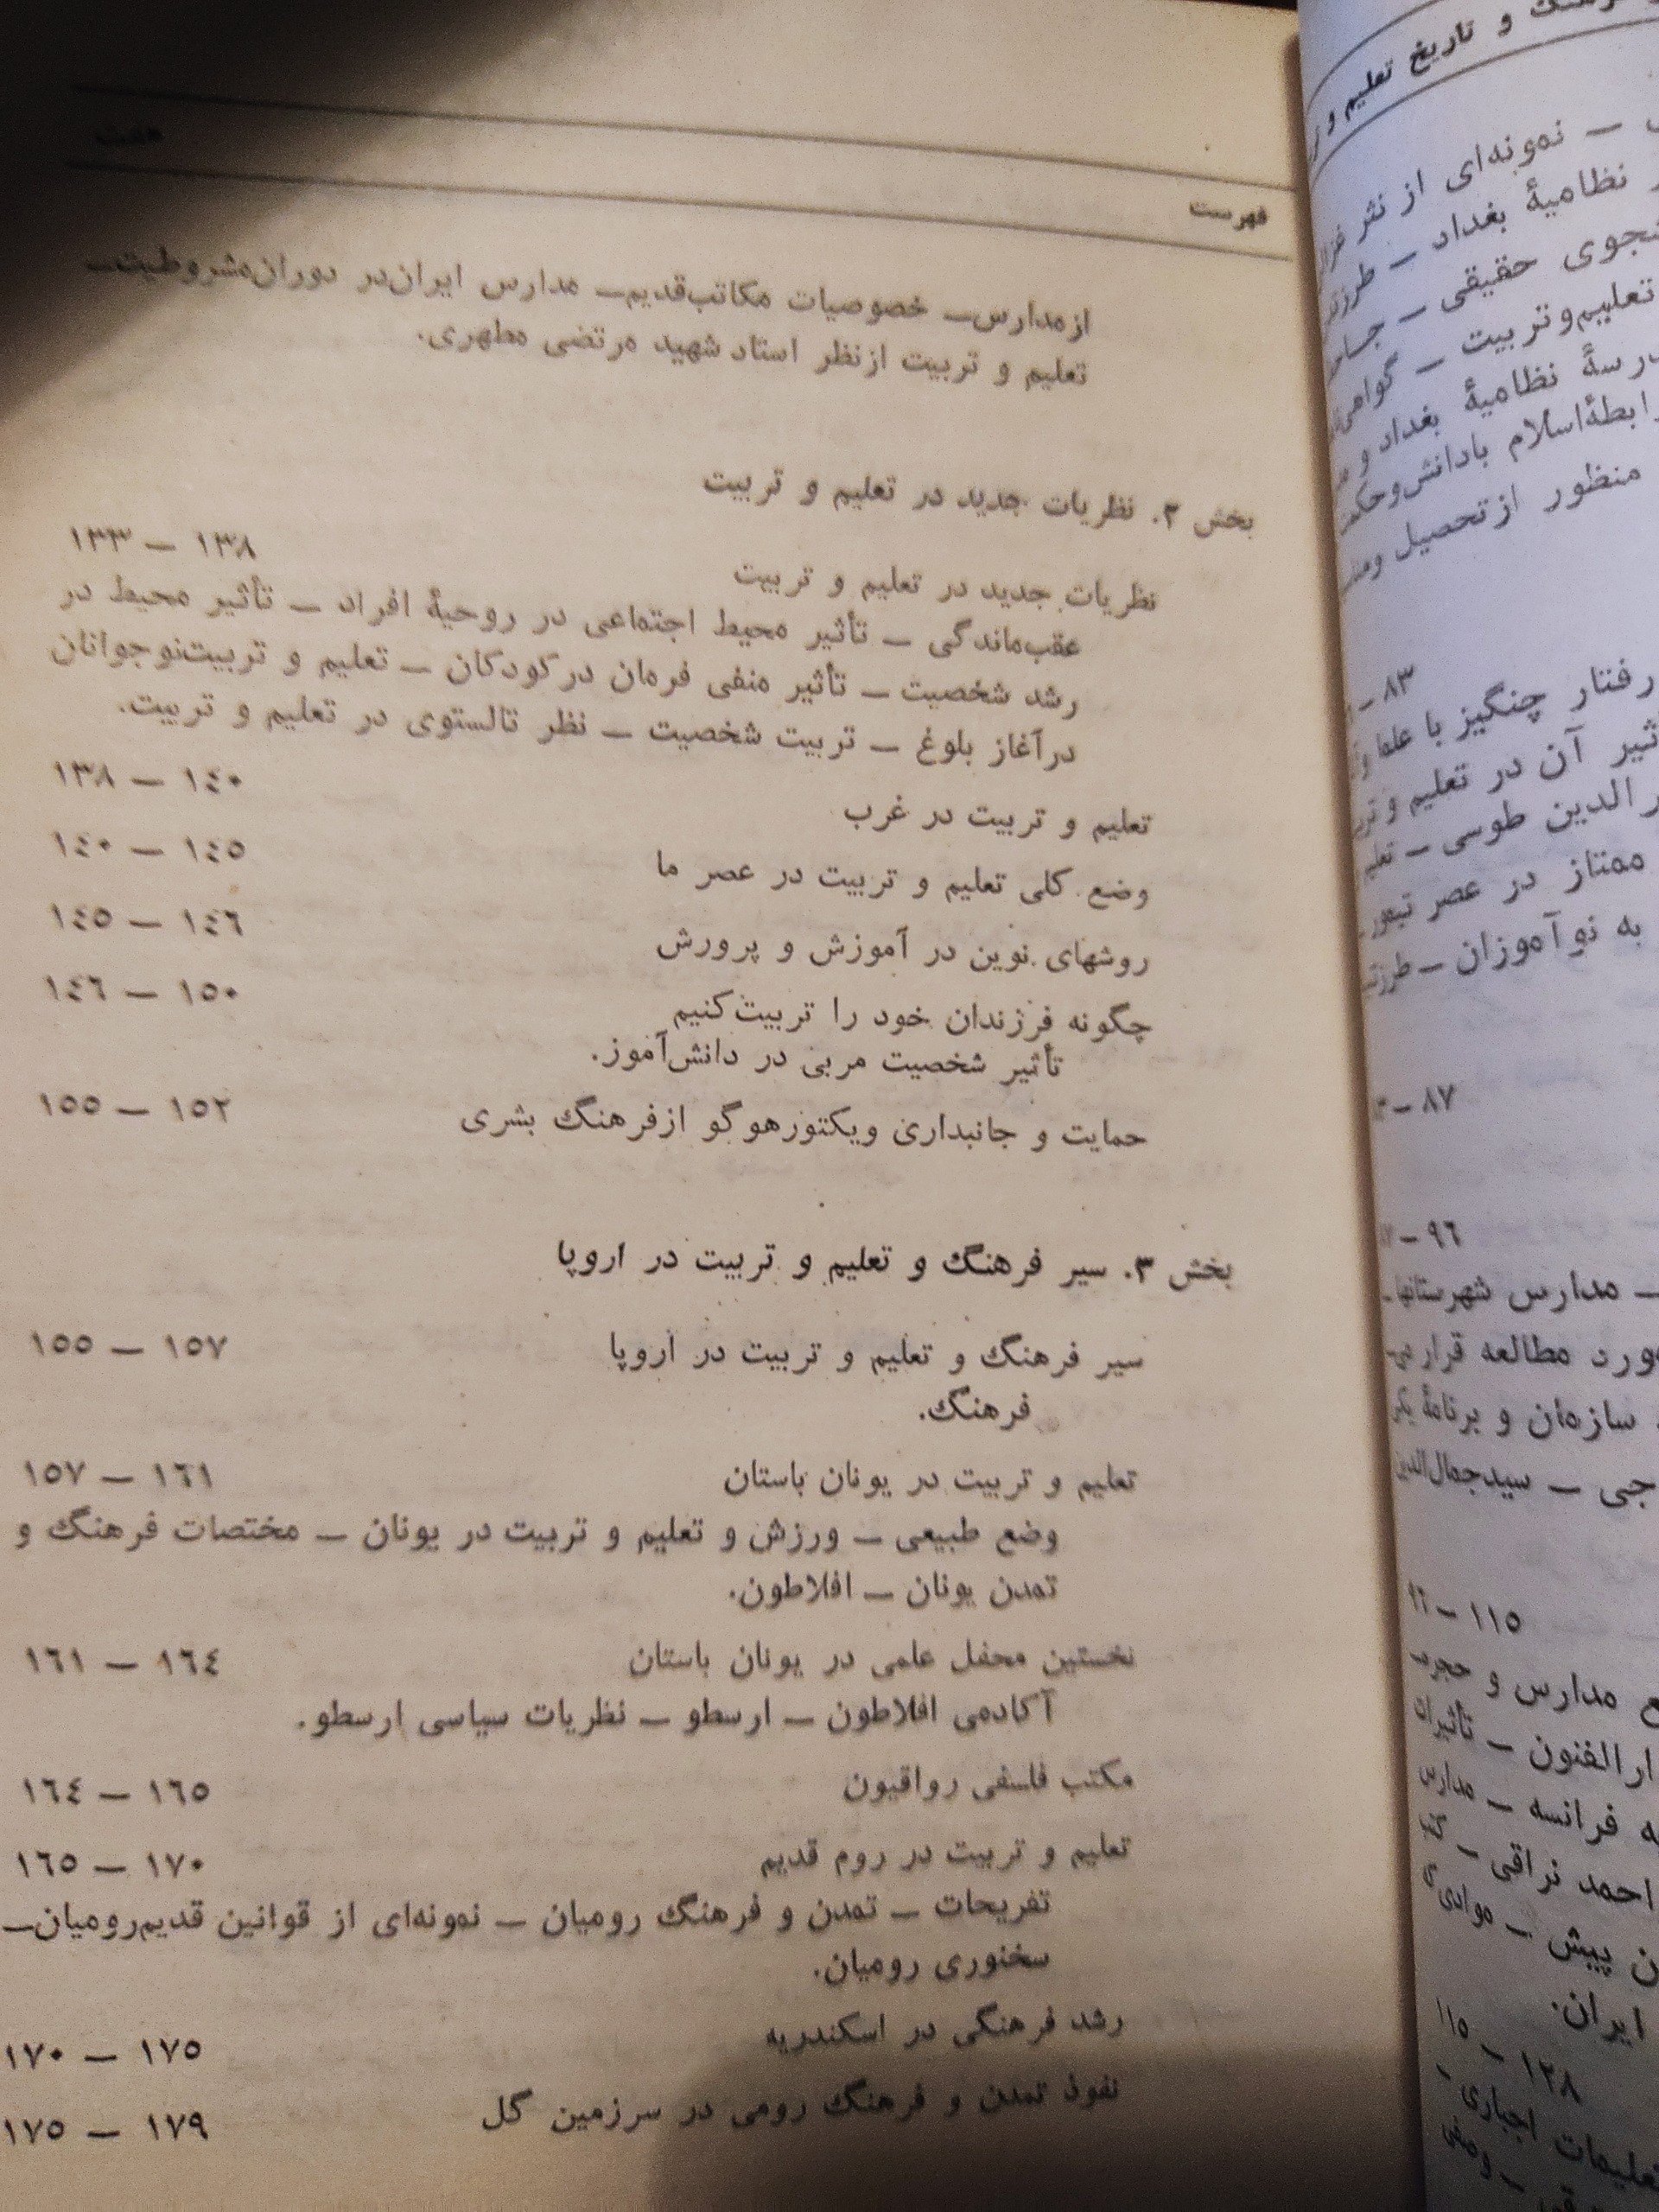 فهرست
هفت
از مدارس — خصوصیات مکاتب قدیم — مدارس ایران در دوران مشروطیت —
تعلیم و تربیت از نظر استاد شهید مرتضی مطهری.
بخش ۲. نظریات جدید در تعلیم و تربیت
نظریات جدید در تعلیم و تربیت ۱۳۸ — ۱۳۳
عقب‌ماندگی — تأثیر محیط اجتماعی در روحیهٔ افراد — تأثیر محیط در
رشد شخصیت — تأثیر منفی فرمان در کودکان — تعلیم و تربیت نوجوانان
در آغاز بلوغ — تربیت شخصیت — نظر تالستوی در تعلیم و تربیت.
تعلیم و تربیت در غرب ۱۴۰ — ۱۳۸
وضع کلی تعلیم و تربیت در عصر ما ۱۴۵ — ۱۴۰
روشهای نوین در آموزش و پرورش ۱۴۶ — ۱۴۵
چگونه فرزندان خود را تربیت کنیم ۱۵۰ — ۱۴۶
تأثیر شخصیت مربی در دانش‌آموز.
حمایت و جانبداری ویکتورهوگو از فرهنگ بشری ۱۵۲ — ۱۵۵
بخش ۳. سیر فرهنگ و تعلیم و تربیت در اروپا
سیر فرهنگ و تعلیم و تربیت در اروپا ۱۵۷ — ۱۵۵
فرهنگ.
تعلیم و تربیت در یونان باستان ۱۶۱ — ۱۵۷
وضع طبیعی — ورزش و تعلیم و تربیت در یونان — مختصات فرهنگ و
تمدن یونان — افلاطون.
نخستین محفل علمی در یونان باستان ۱۶۴ — ۱۶۱
آکادمی افلاطون — ارسطو — نظریات سیاسی ارسطو.
مکتب فلسفی رواقیون ۱۶۵ — ۱۶۴
تعلیم و تربیت در روم قدیم ۱۷۰ — ۱۶۵
تفریحات — تمدن و فرهنگ رومیان — نمونه‌ای از قوانین قدیم رومیان —
سخنوری رومیان.
رشد فرهنگی در اسکندریه ۱۷۵ — ۱۷۰
نفوذ تمدن و فرهنگ رومی در سرزمین گل ۱۷۹ — ۱۷۵
و تاریخ تعلیم و
— نمونه‌ای از نثر
نظامیهٔ بغداد — طرز
حقیقی —
تعلیم و تربیت —
نظامیهٔ بغداد و
اسلام با دانش و
منظور از تحصیل
۸۳ —
رفتار چنگیز با علما
آن در تعلیم و
الدین طوسی —
ممتاز در عصر
به نوآموزان —
۸۷ —
۹۶ —
— مدارس شهرستانها —
مطالعه قرار
سازمان و برنامهٔ
— سیدجمال‌الدین
۱۱۵ — ۹۶
مدارس و
— تأثیرات
فرانسه — مدارس
احمد نراقی —
پیش —
ایران.
۱۲۸ — ۱۱۵
اجباری —